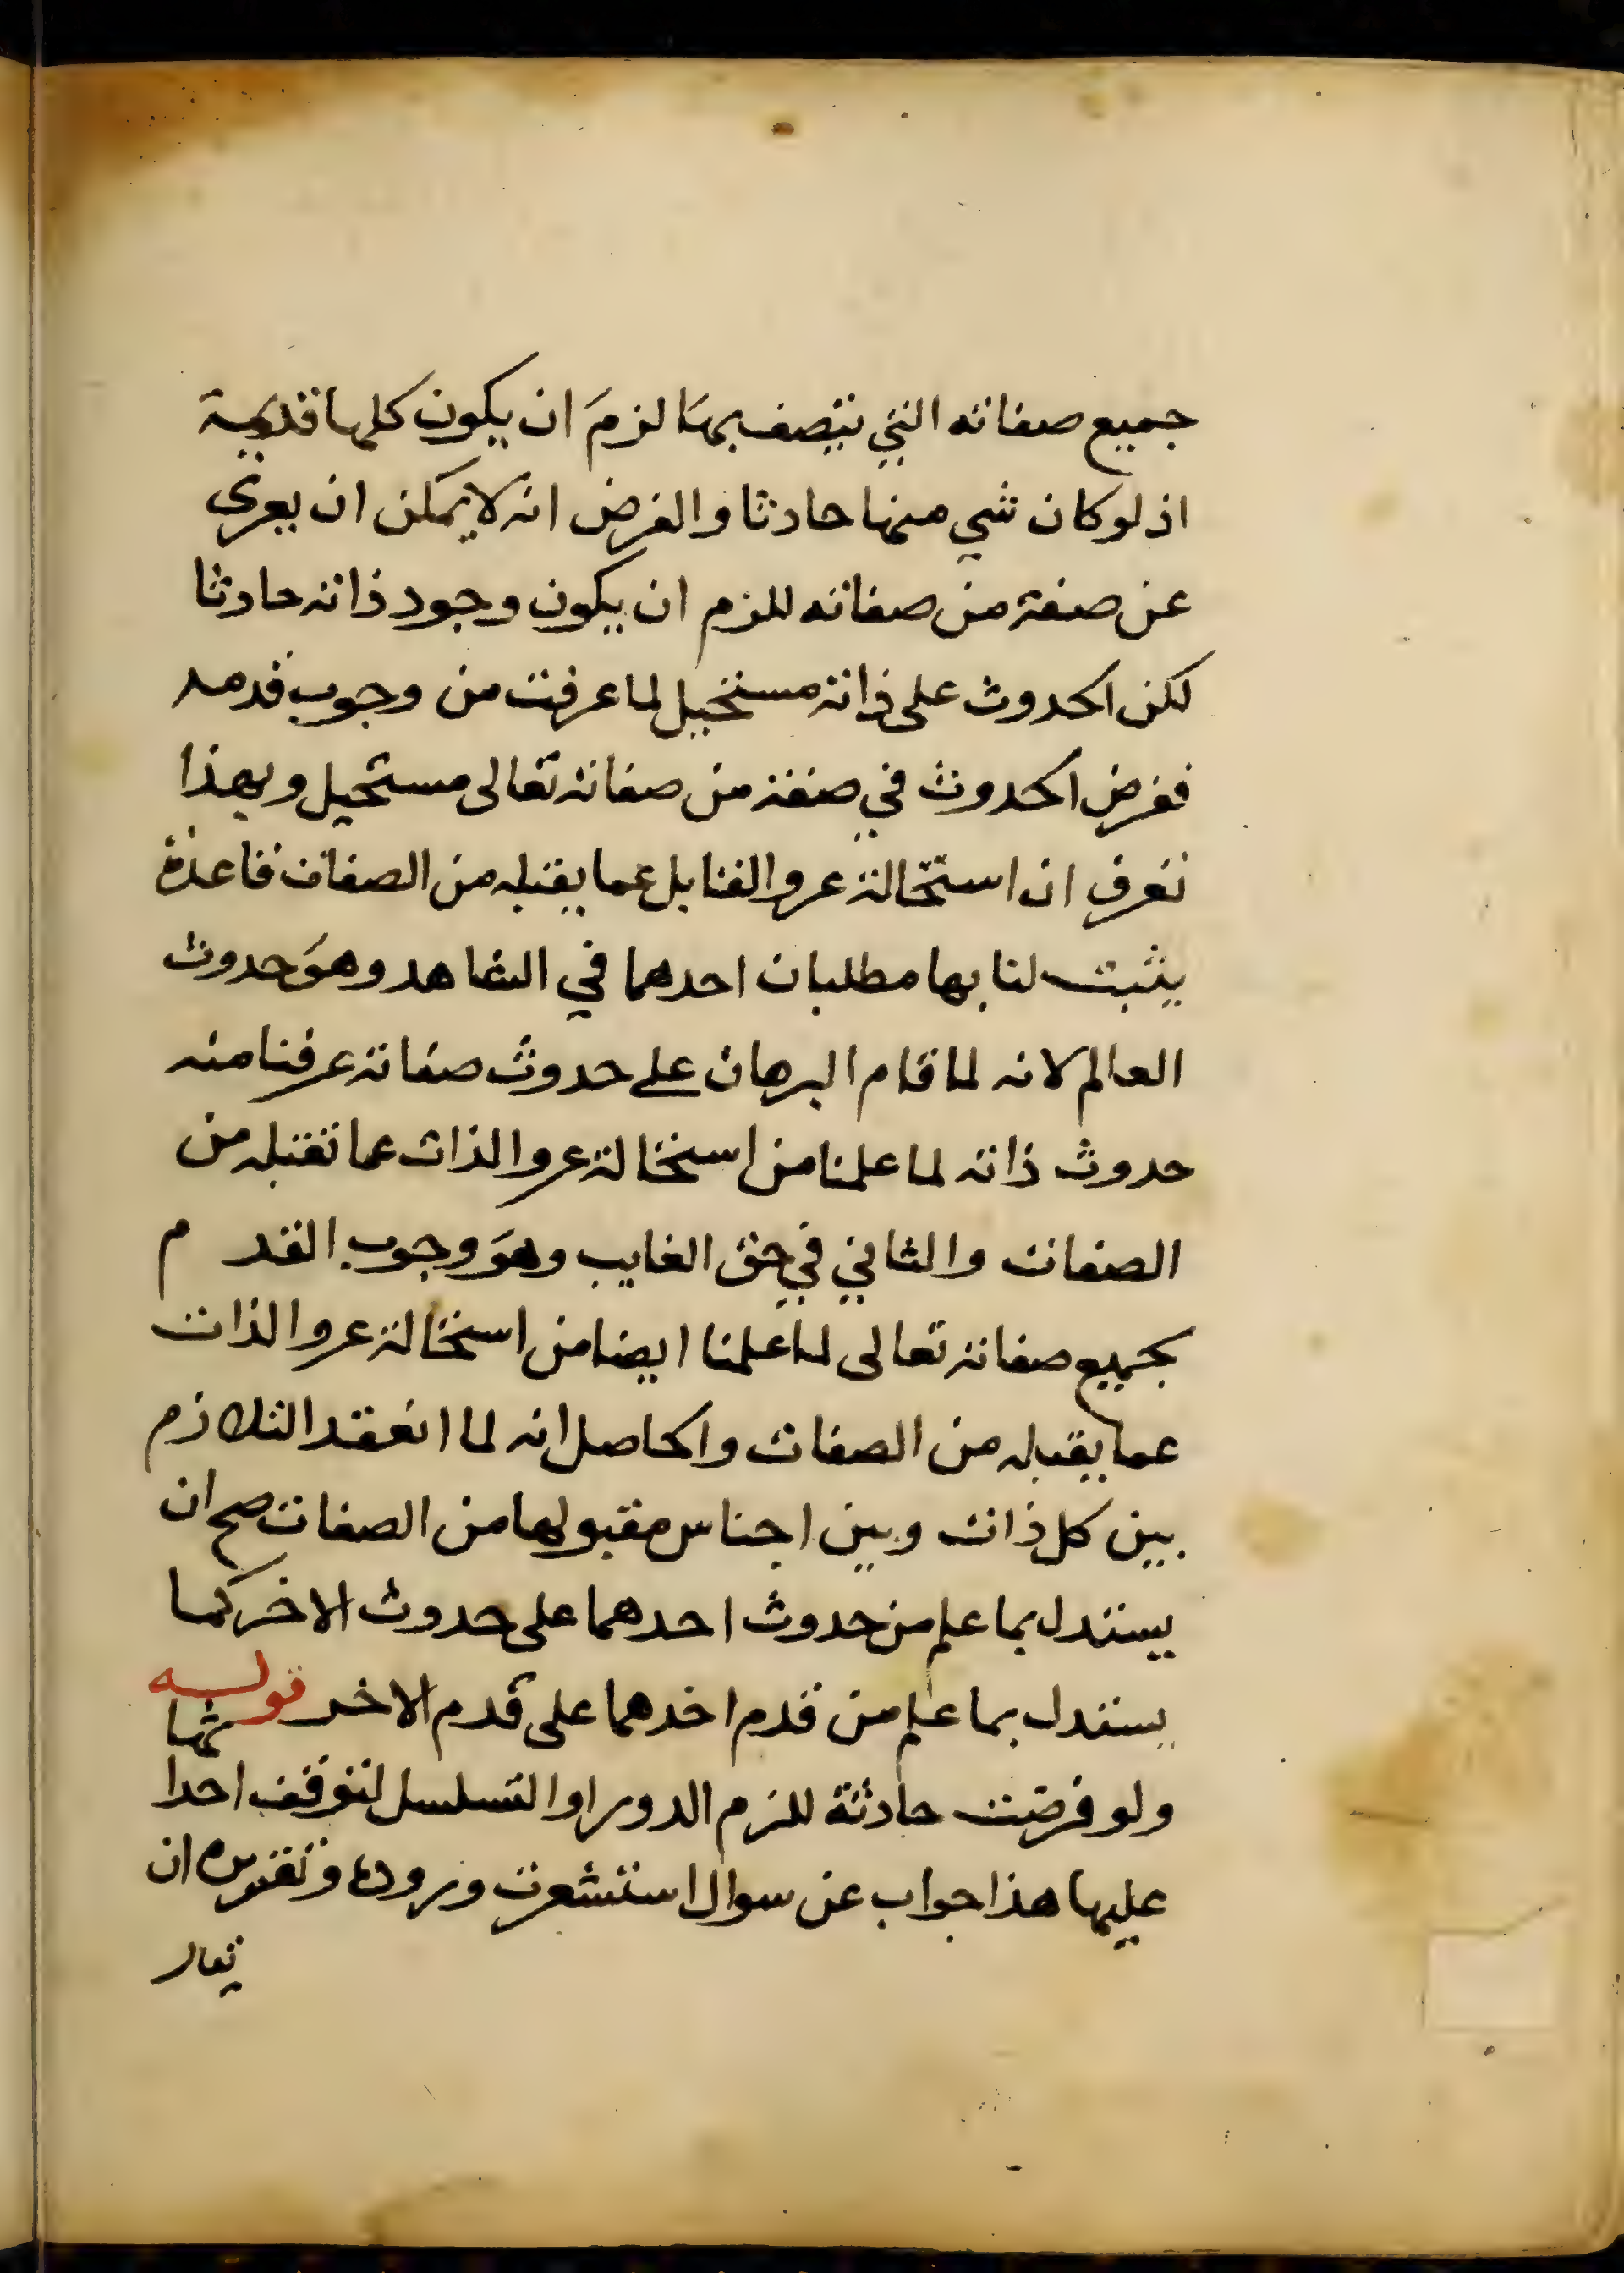 جميع صفاته التي يتصف بها لزم ان يكون كلها قديمة
اذ لو كان شي منها حادثا والفرض انه لا يمكن ان يعرى
عن صفة من صفاته للزم ان يكون وجود ذاته حادثا
لكن الحدوث على ذاته مستحيل لما عرفت من وجوب قدمه
ففرض الحدوث في صفة من صفاته تعالى مستحيل وبهذا
تعرف ان استحالة عرو القابل عما يقبله من الصفات قاعدة
يثبت لنا بها مطلبان احدهما في الشاهد وهو حدوث
العالم لانه لما قام البرهان على حدوث صفاته عرفنا منه
حدوث ذاته لما علمنا من استحالة عرو الذات عما تقبله من
الصفات والثاني في حق الغايب وهو وجوب القدم
لجميع صفاته تعالى لما علمنا ايضا من استحالة عرو الذات
عما يقبله من الصفات والحاصل انه لما انعقد التلازم
بين كل ذات وبين اجناس مقبولها من الصفات صح ان
يستدل بما علم من حدوث احدهما على حدوث الاخر كما
يستدل بما علم من قدم احدهما على قدم الاخر قوله
ولو فرضت حادثة للزم الدور او التسلسل لتوقف احدا
عليها هذا جواب عن سوال استشعرت وروده وتقريره ان
يقال